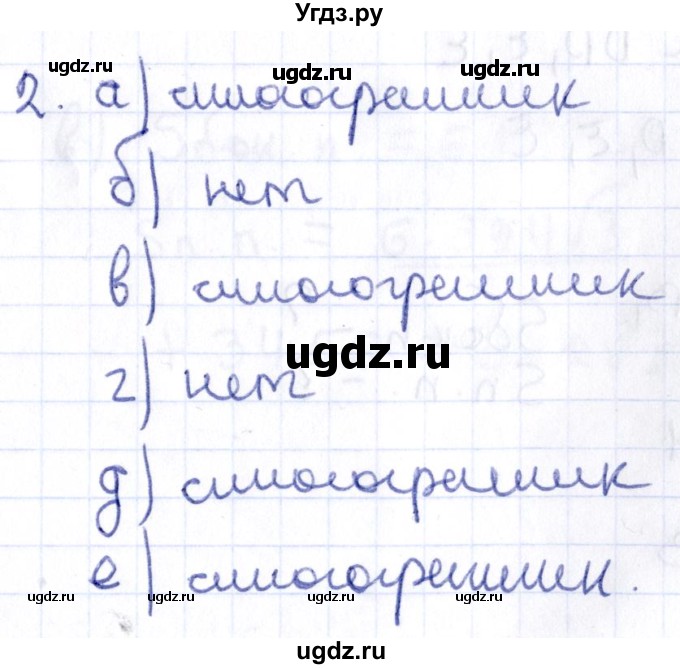 Угдз.ру
ugdz.ru ugdz.ru ugdz.ru
2. а) многогранник
б) нет
ugdz.ru ugdz.ru
в) многогранник
ugdz.ru
г) нет
ugdz.ru ugdz.ru
д) многогранник
е) многогранник.
ugdz.ru ugdz.ru ugdz.ru
ugdz.ru